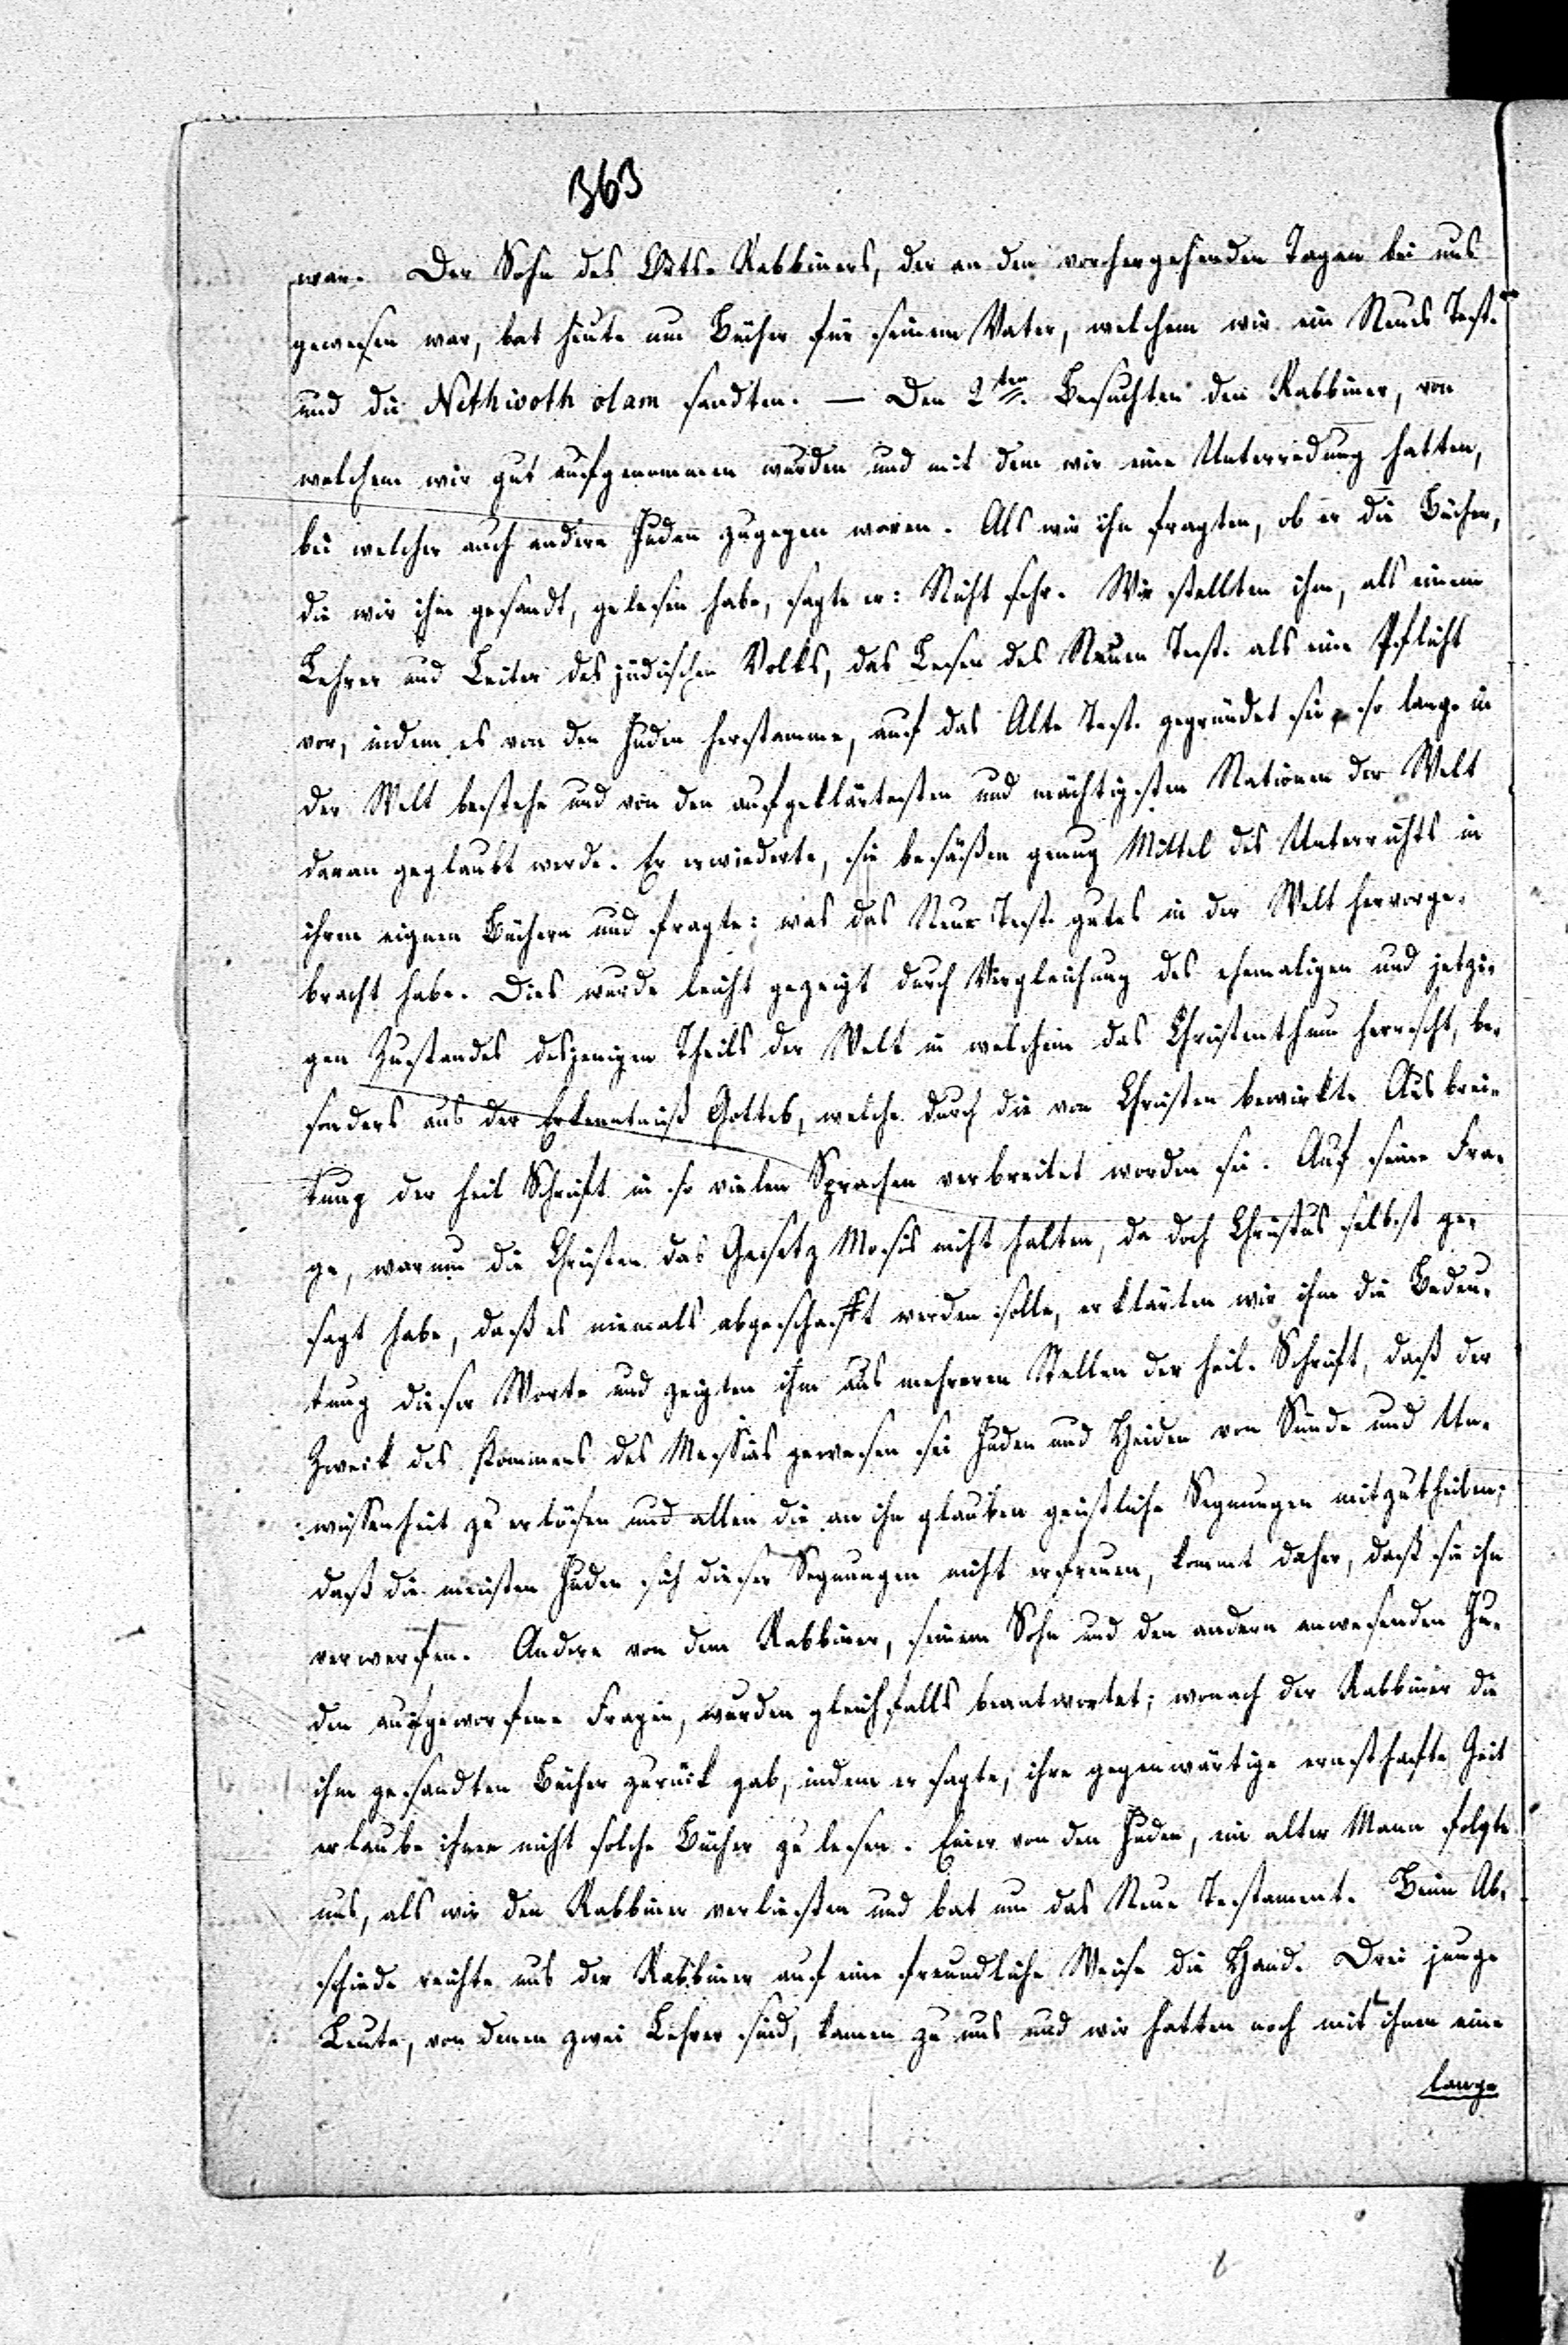 363
war. Der Sohn des Orts-Rabbiners, der an den vorhergehenden Tagen bei uns
gewesen war, bat heute um Bücher für seinen Vater, welchem wir ein Neues Test.
und die Nethivoth olam sandten. — Den 2ten. Besuchten den Rabbiner, von
welchem wir gut aufgenommen wurden und mit dem wir eine Unterredung hatten,
bei welcher auch andere Juden zugegen waren. Als wir ihn fragten, ob er die Bücher,
die wir ihm gesandt, gelesen habe, sagte er: Nicht sehr. Wir stellten ihm, als einem
Lehrer und Leiter des jüdischen Volks, das Lesen des Neuen Test. als eine Pflicht
vor, indem es von den Juden herstamme, auf das Alte Test. gegründet sei, so lange in
der Welt bestehe und von den aufgeklärtesten und mächtigsten Nationen der Welt
daran geglaubt werde. Er erwiederte, sie besäßen genug Mittel des Unterrichts in
ihren eignen Büchern und fragte: was das Neue Test. gutes in der Welt hervorge-
bracht habe. Dies wurde leicht gezeigt durch Vergleichung des ehemaligen und jetzi-
gen Zustandes desjenigen Theils der Welt in welchem das Christenthum herrscht, be-
sonders aus der Erkenntniß Gottes, welche durch die von Christen bewirkte Ausbrei-
tung der heil Schrift in so vielen Sprachen verbreitet worden sei. Auf seine Fra-
ge, warum die Christen das Gesetz Mosis nicht halten, da doch Christus selbst ge-
sagt habe, daß es niemals abgeschafft werden solle, erklärten wir ihm die Bedeu-
tung dieser Worte und zeigten ihm aus mehreren Stellen der heil. Schrift, daß der
Zweck des Kommens des Messias gewesen sei Juden und Heiden von Sünde und Un-
wissenheit zu erlösen und allen die an ihn glauben geistliche Segnungen mitzutheilen;
daß die meisten Juden sich dieser Segnungen nicht erfreuen, kommt daher, daß sie ihn
verwerfen. Andere von dem Rabbiner, seinem Sohn und den andern anwesenden Ju-
den aufgeworfene Fragen, wurden gleichfalls beantwortet; wonach der Rabbiner die
ihm gesandten Bücher zurück gab, indem er sagte, ihre gegenwärtige ernsthafte Zeit
erlaube ihnen nicht solche Bücher zu lesen. Einer von den Juden, ein alter Mann folgte
uns, als wir den Rabbiner verließen und bat um das Neue Testament. Beim Ab-
schiede reichte uns der Rabbiner auf eine freundliche Weise die Hand. Drei junge
Leute, von denen zwei Lehrer sind, kamen zu uns und wir hatten noch mit ihnen eine
lange